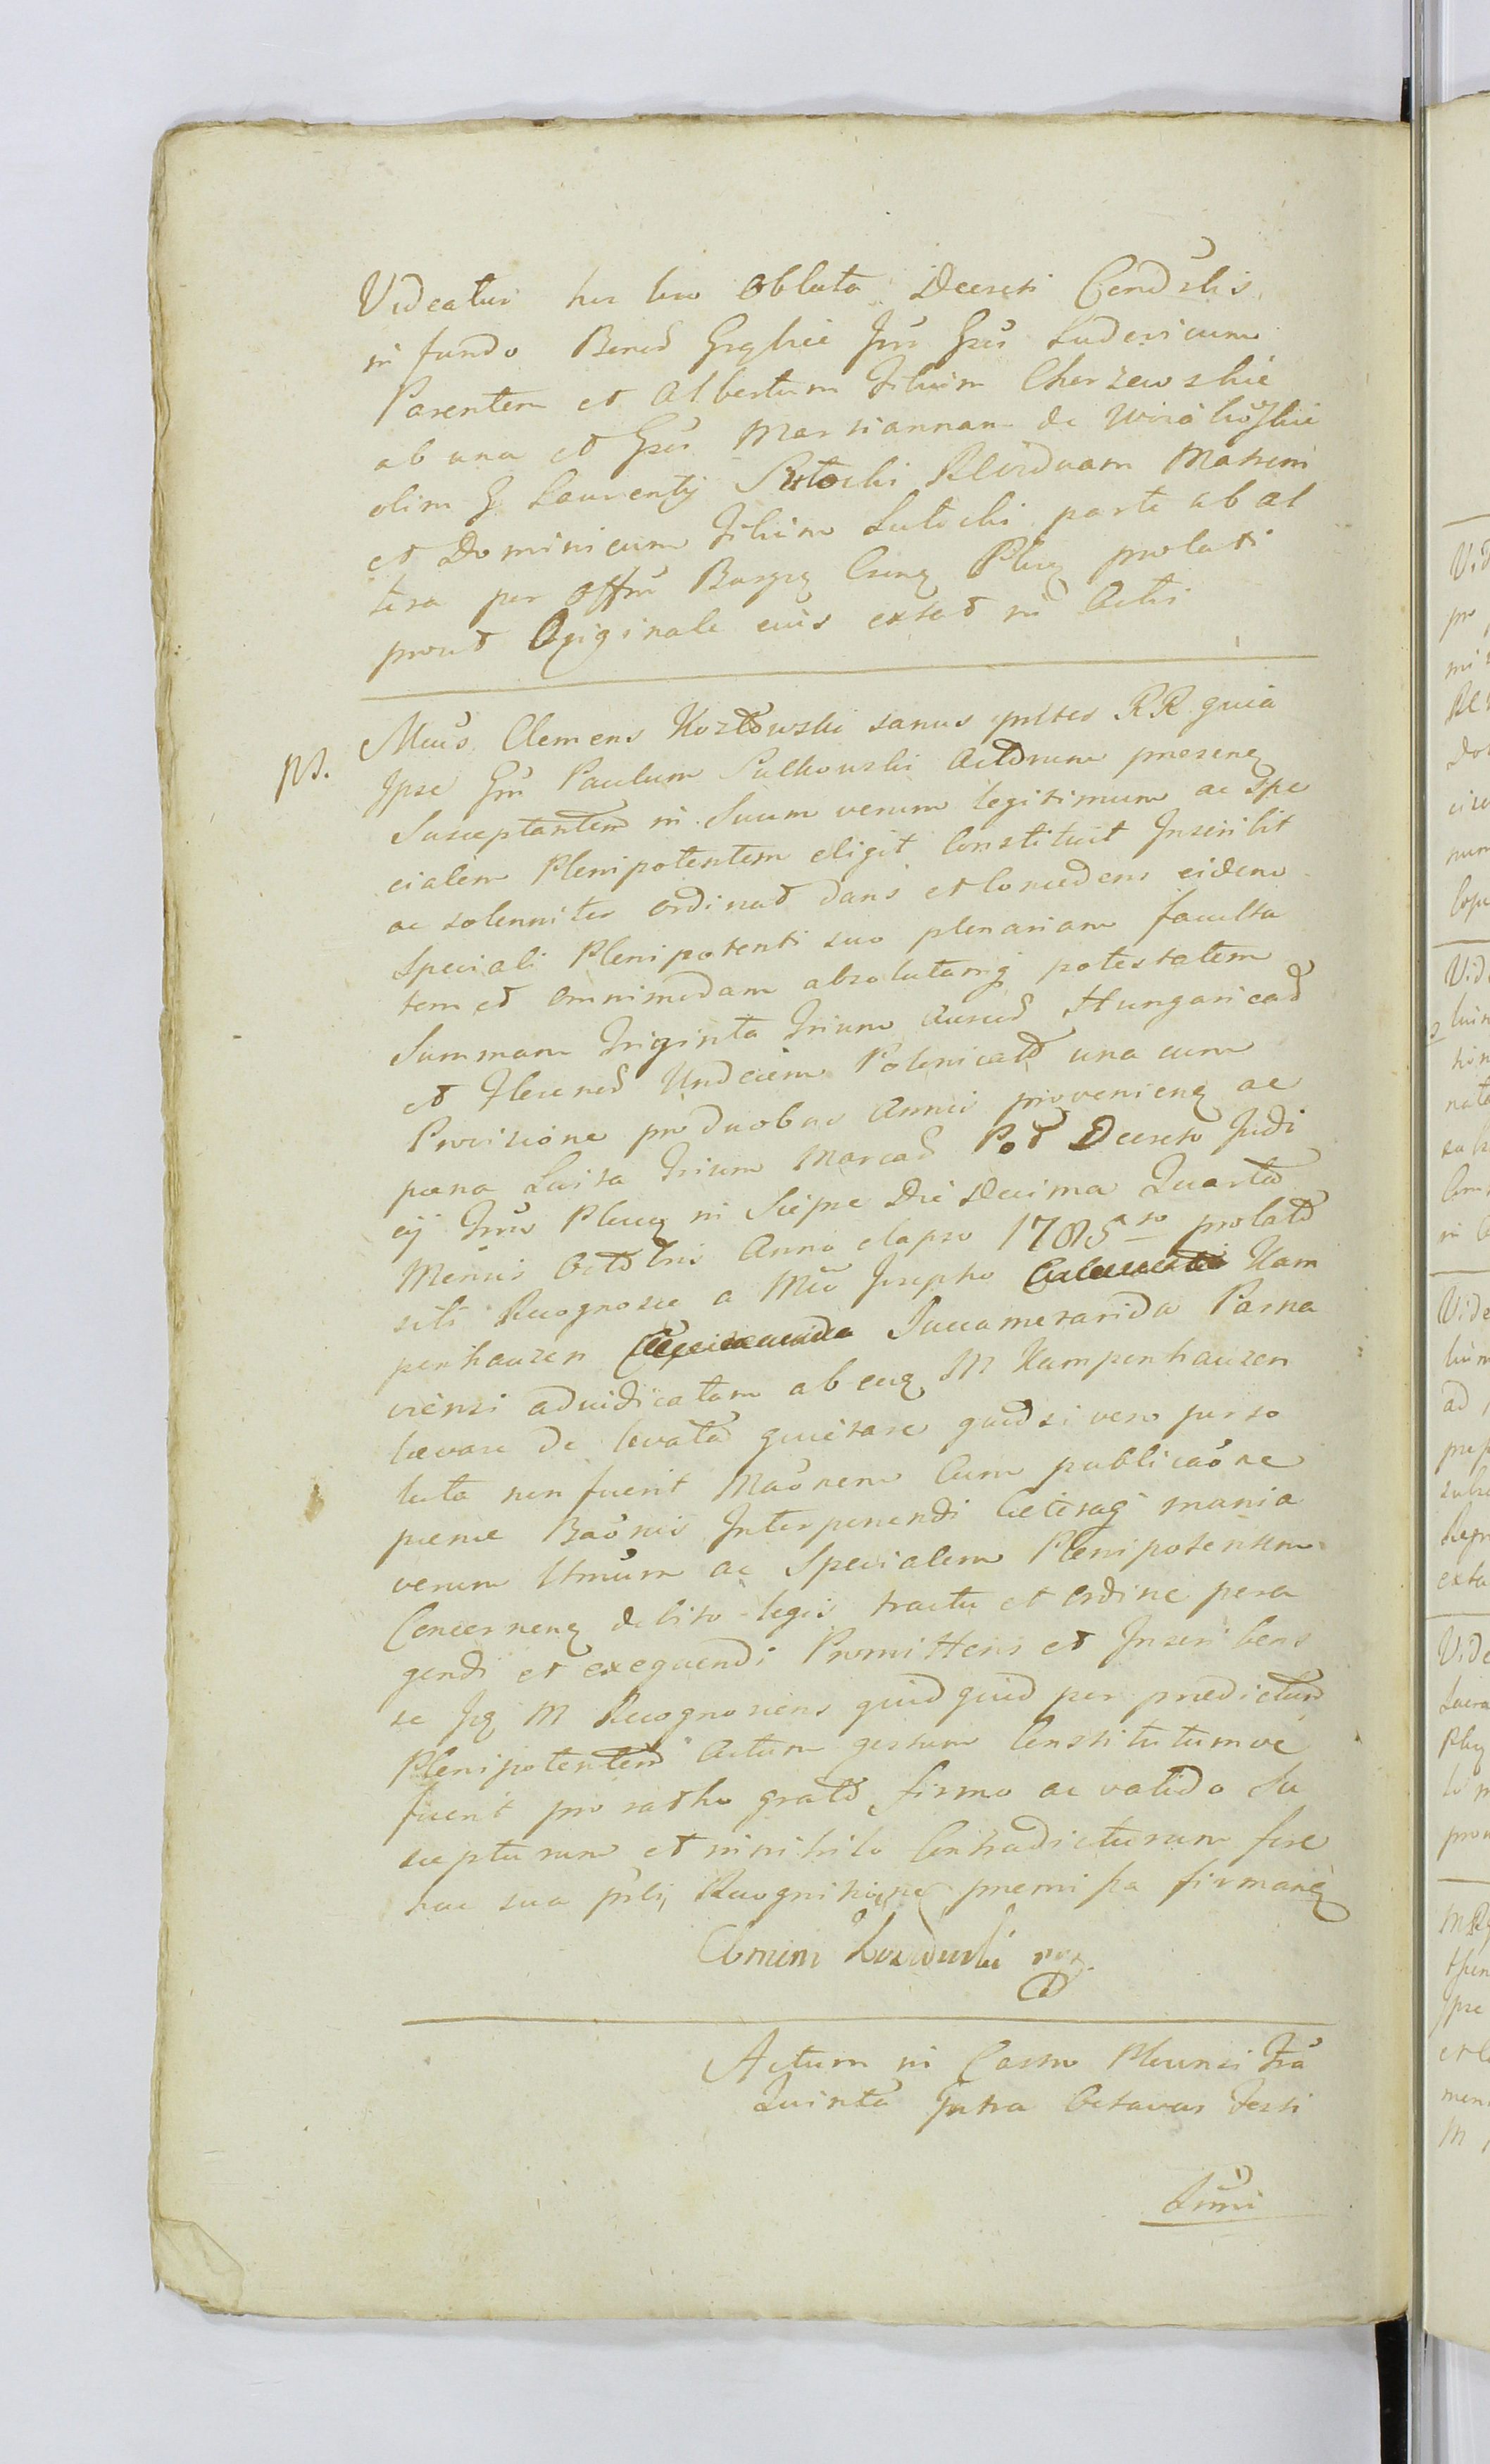 Videatur hic loco Oblata Decreti Cond̃słis
in fundo Bonoꝝ Gręlice Jnr̃ Gsũ Ludovicum
Parentem et Albertum Filium Chorzewskie
ab una et Gsũ Mariannam de
olim G Laurentij Sutocki Relictvam Matrem
et Dominicum Filium Sutocki parte ab al
tera per Offm̃ Burgꝫ Csenꝫ Plucꝫ prolati
prout Originale eius extat in Actis
ps. Mcus Clemens Kozłowski sanus pntes RR quia
Jpse Gm̃ Paulum Sulkowski Actorum presenꝫ
Susceptantem in Suum verum legitimum ac Spe
cialem Plenipotentem eligit Constituit Inscribit
ac solenniter ordinat dans et Concedens eidem
Speciali Plenipotenti suo plenariam faculta
tem et omnimodam absolutamqꝫ potestatem
Summam Triginta Trium Aureoꝝ Hungaricaꝝ
et Florenoꝝ Undecim Polonicalꝫ una cum
Provisione pro duobus Annis provenienꝫ ac
pæna Luita Trium Marcaꝝ Polł Decreto Judi
cij Trris Plucꝫ in Sierpc Die Decima Quarta
Mensis Octobris Anno elapso 1785to prolato
sibi Recognosce a Mco Josepho Kam
penhauzen Succamerarida Parna
viensi adiudicatam ab eoqꝫ M Kampenhauzen
levare de levata quietare quodsi vero perso
luta non fuerit Mao͂nem Cum publicao͂ne
pænæ Bao͂nis Interponendi Cæteraqꝫ omnia
verum ltmũm ac Specialem Plenipotentem
Concernenꝫ debito legis tractu et ordine pera
gendi et exequendi Promittens et Inscribens
se Jqꝫ M Recognoscens quidquid per prædictum
Plenipotentem Actum gestum Constitutumve
fuerit pro ratho grato firmo ac valido Su
scepturum et in nihilo Contradicturum fore
hac sua pñti Recognitione præmissa firmanꝫ
Clemens Kozłowski mpp.
Actum in Castro Plocensi Fria
Quinta Intra Octavas Festi
Ssmi